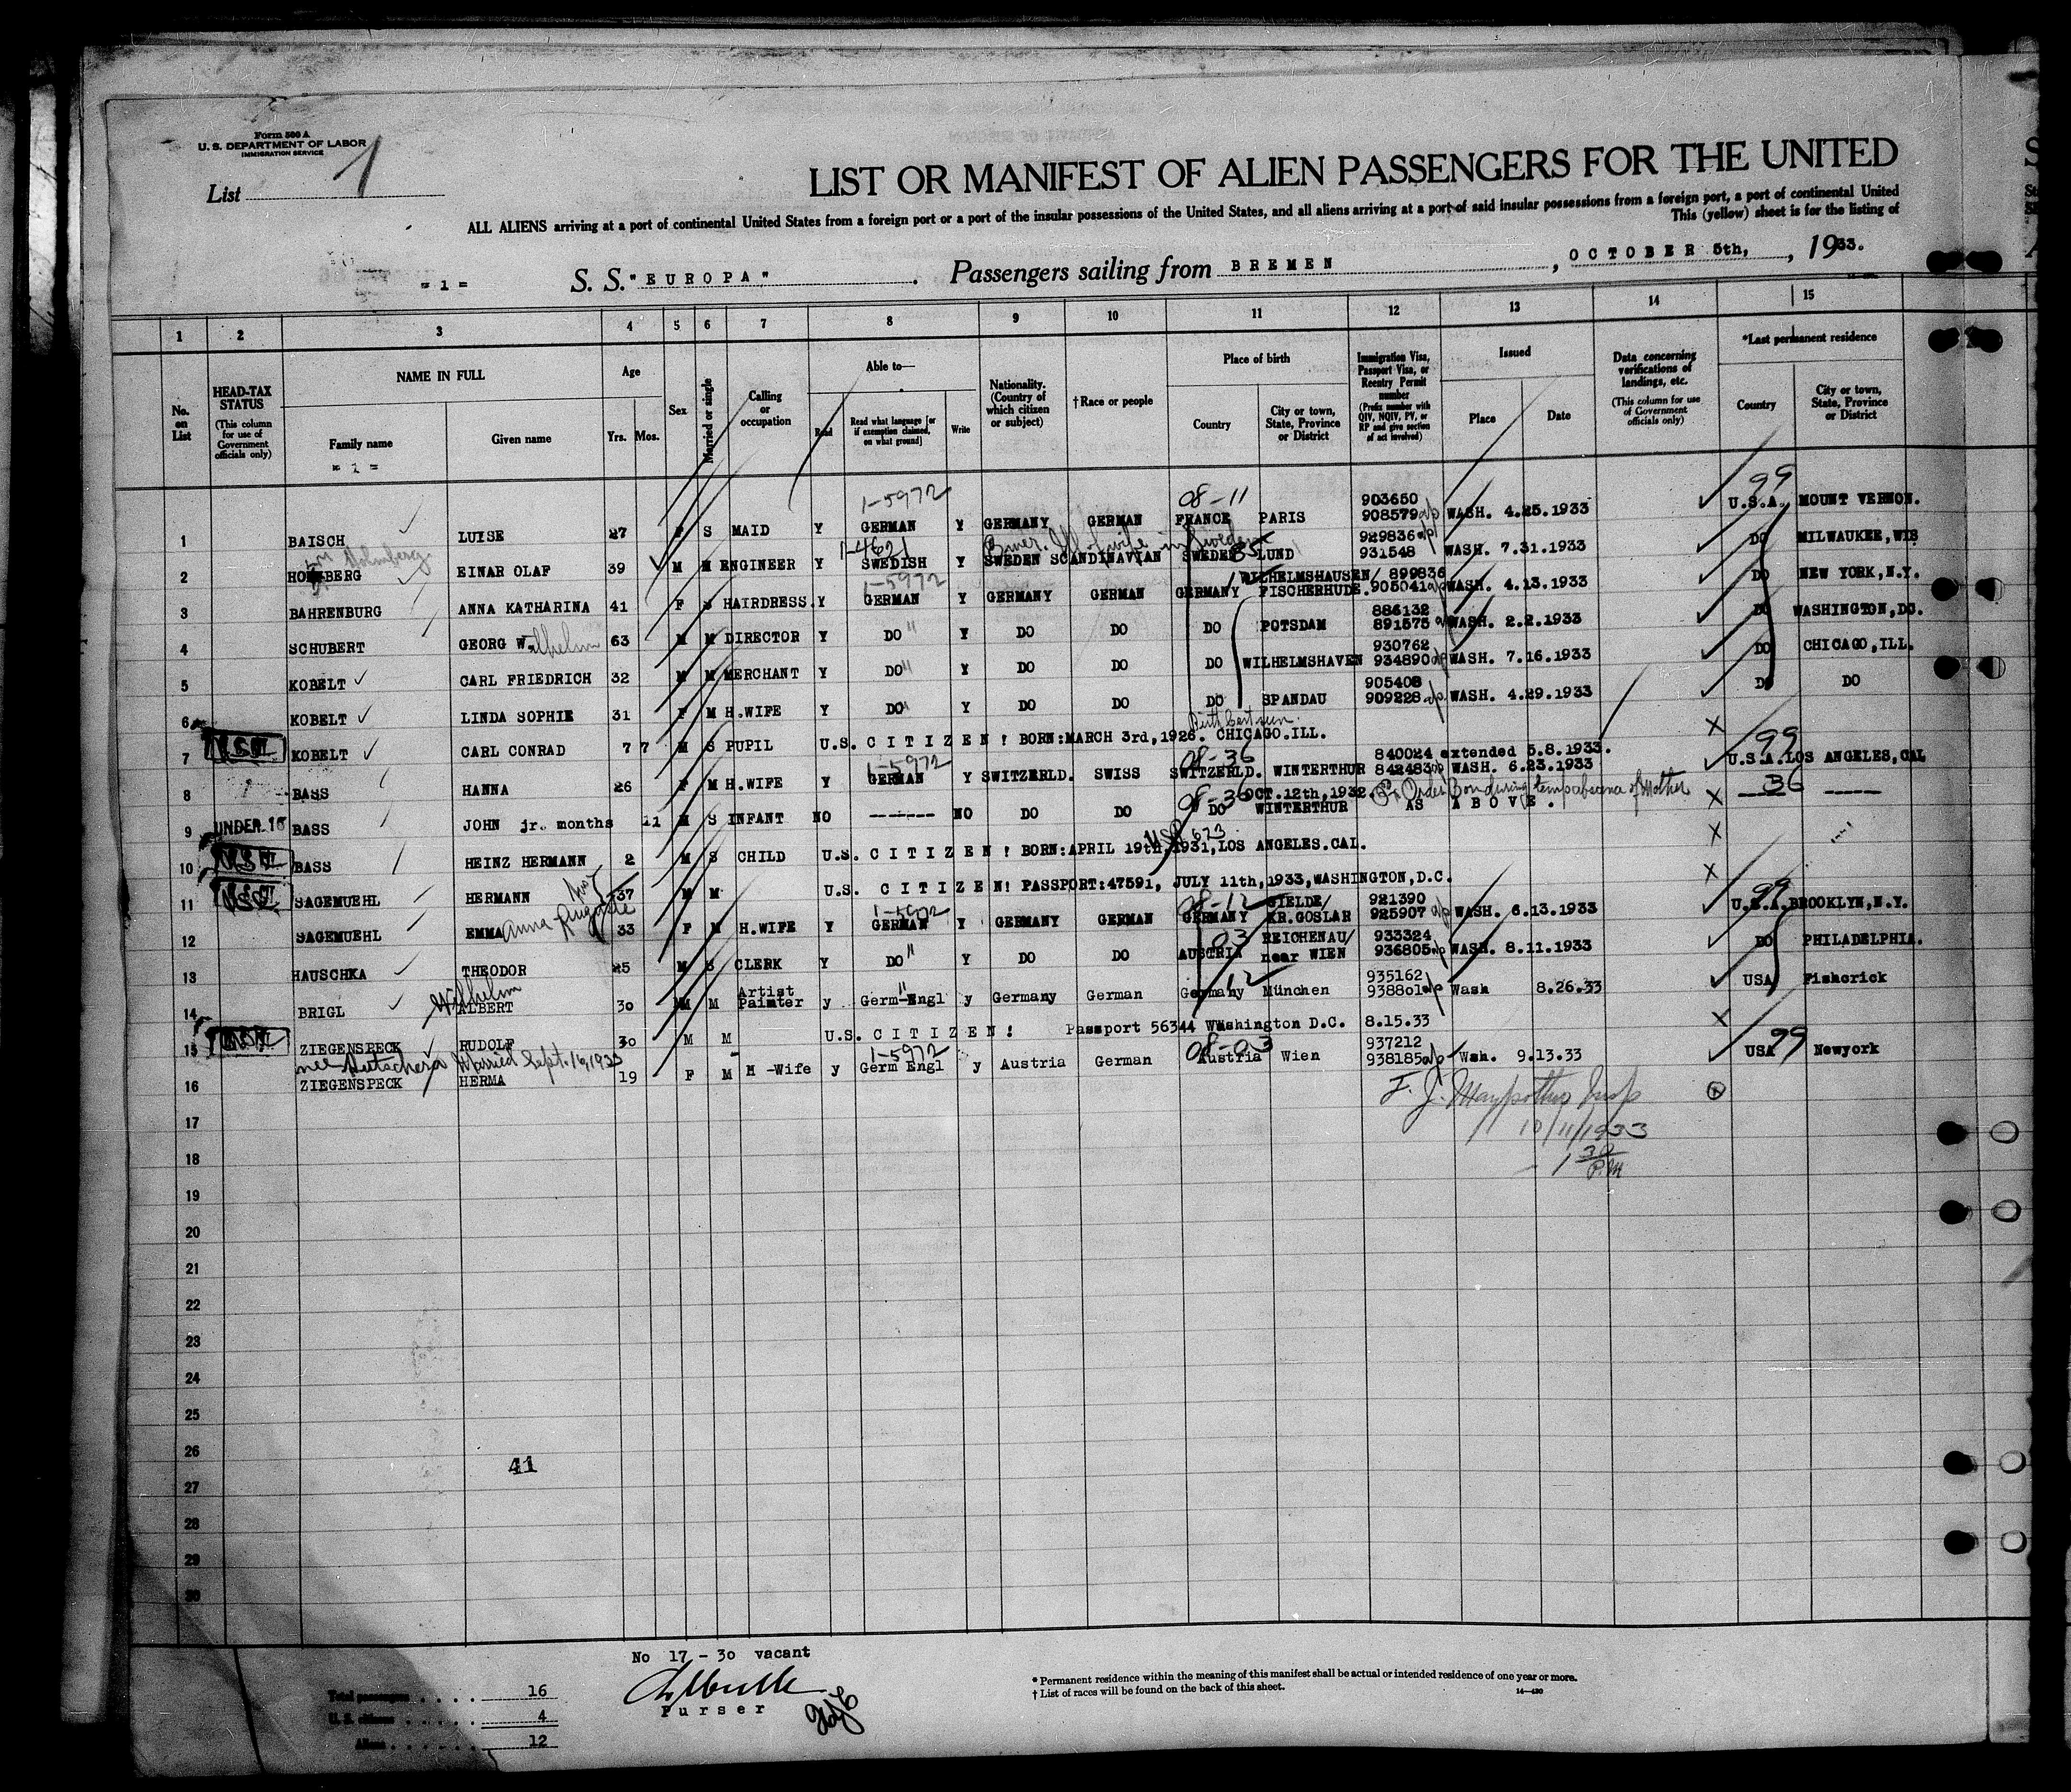 Form 500 A
U. S. DEPARTMENT OF LABOR
IMMIGRATION SERVICE
List 1
LIST OR MANIFEST OF ALIEN PASSENGERS FOR THE UNITED
ALL ALIENS arriving at a port of continental United States from a foreign port or a port of the insular possessions of the United States, and all aliens arriving at a port of said insular possessions from a foreign port, a port of continental United
This (yellow) sheet is for the listing of
= 1 = S. S. "EUROPA" . Passengers sailing from BREMEN , OCTOBER 5th, , 1933.
1 2 3 4 5 6 7 8 9 10 11 12 13 14 15
No. on List
HEAD-TAX STATUS (This column for use of Government officials only)
NAME IN FULL
Family name
= 1 =
Given name
Age
Yrs. Mos.
Sex
Married or single
Calling or occupation
Able to—
Read
Read what language [or if exemption claimed, on what ground]
Write
Nationality. (Country of which citizen or subject)
†Race or people
Place of birth
Country
City or town, State, Province or District
Immigration Visa, Passport Visa, or Reentry Permit number (Prefix number with QIV, NQIV, PV, or RP and give section of act involved)
Issued
Place
Date
Data concerning verifications of landings, etc. (This column for use of Government officials only)
*Last permanent residence
Country
City or town, State, Province or District
1-5972 08-11 903650 99
1 BAISCH LUISE 27 F S MAID Y GERMAN Y GERMANY GERMAN FRANCE PARIS 908579 WASH. 4.25.1933 U.S.A. MOUNT VERNON.
Holmberg 1-4621 wife in Sweden 85 929836
2 BERG EINAR OLAF 39 M M ENGINEER Y SWEDISH Y SWEDEN SCANDINAVIAN SWEDEN LUND 931548 WASH. 7.31.1933 DO MILWAUKEE, WIS
1-5972 12 WILHELMSHAUSEN/ 899836
3 BAHRENBURG ANNA KATHARINA 41 F S HAIRDRESS. Y GERMAN Y GERMANY GERMAN GERMANY FISCHERHUDE. 905041 WASH. 4.13.1933 DO NEW YORK, N.Y.
886132
4 SCHUBERT GEORG W. Wilhelm 63 M M DIRECTOR Y DO " Y DO DO DO POTSDAM 891575 WASH. 2.2.1933 DO WASHINGTON, DC.
930762
5 KOBELT CARL FRIEDRICH 32 M M MERCHANT Y DO " Y DO DO DO WILHELMSHAVEN 934890 WASH. 7.16.1933 DO CHICAGO, ILL.
905408
6 KOBELT LINDA SOPHIE 31 F M H.WIFE Y DO " Y DO DO DO SPANDAU 909228 WASH. 4.29.1933 DO DO
Birth Cert seen.
7 KOBELT CARL CONRAD 7 7 M S PUPIL U.S. CITIZEN! BORN:MARCH 3rd, 1926. CHICAGO. ILL. X
1-5972 08-36 840024 extended 5.8.1933. 99
8 BASS HANNA 26 F M H.WIFE Y GERMAN Y SWITZERLD. SWISS SWITZERLD. WINTERTHUR 842483 WASH. 6.23.1933 U.S.A. LOS ANGELES, CAL
08-36 OCT. 12th, 1932. Mother 36
9 UNDER 16 BASS JOHN jr. months 11 M S INFANT NO ------- NO DO DO DO WINTERTHUR AS ABOVE. X ----- -----
10 BASS HEINZ HERMANN 2 M S CHILD U.S. CITIZEN! BORN:APRIL 19th, 1931, LOS ANGELES. CAL. X
11 SAGEMUEHL HERMANN 37 M M U.S. CITIZEN! PASSPORT:47591, JULY 11th, 1933, WASHINGTON, D.C. X
Anna 1-5972 08-12 GIELDE/ 921390 99
12 SAGEMUEHL EMMA 33 F M H.WIFE Y GERMAN Y GERMANY GERMAN GERMANY KR.GOSLAR 925907 WASH. 6.13.1933 U.S.A. BROOKLYN, N.Y.
03 REICHENAU/ 933324
13 HAUSCHKA THEODOR 25 M S CLERK Y DO " Y DO DO AUSTRIA near WIEN 936805 WASH. 8.11.1933 DO PHILADELPHIA.
Wilhelm Artist " 12 935162
14 BRIGL ALBERT 30 M M Painter y Germ-Engl y Germany German Germany München 938801 Wash 8.26.33 USA Fishcrick
15 ZIEGENSPECK RUDOLF 30 M M U.S. CITIZEN! Passport 56344 Washington D.C. 8.15.33 X
nee Married Sept. 16, 1933 1-5972 08-03 937212 99
16 ZIEGENSPECK HERMA 19 F M H -Wife y Germ Engl y Austria German Austria Wien 938185 Wash. 9.13.33 USA Newyork
17
10/11/1933
18
1 30 P.M
19
20
21
22
23
24
25
26
41
27
28
29
30
No 17 - 30 vacant
Purser
Total passengers . . . . . 16
U. S. citizens . . . . . 4
Aliens . . . . . 12
* Permanent residence within the meaning of this manifest shall be actual or intended residence of one year or more.
† List of races will be found on the back of this sheet.
14—430